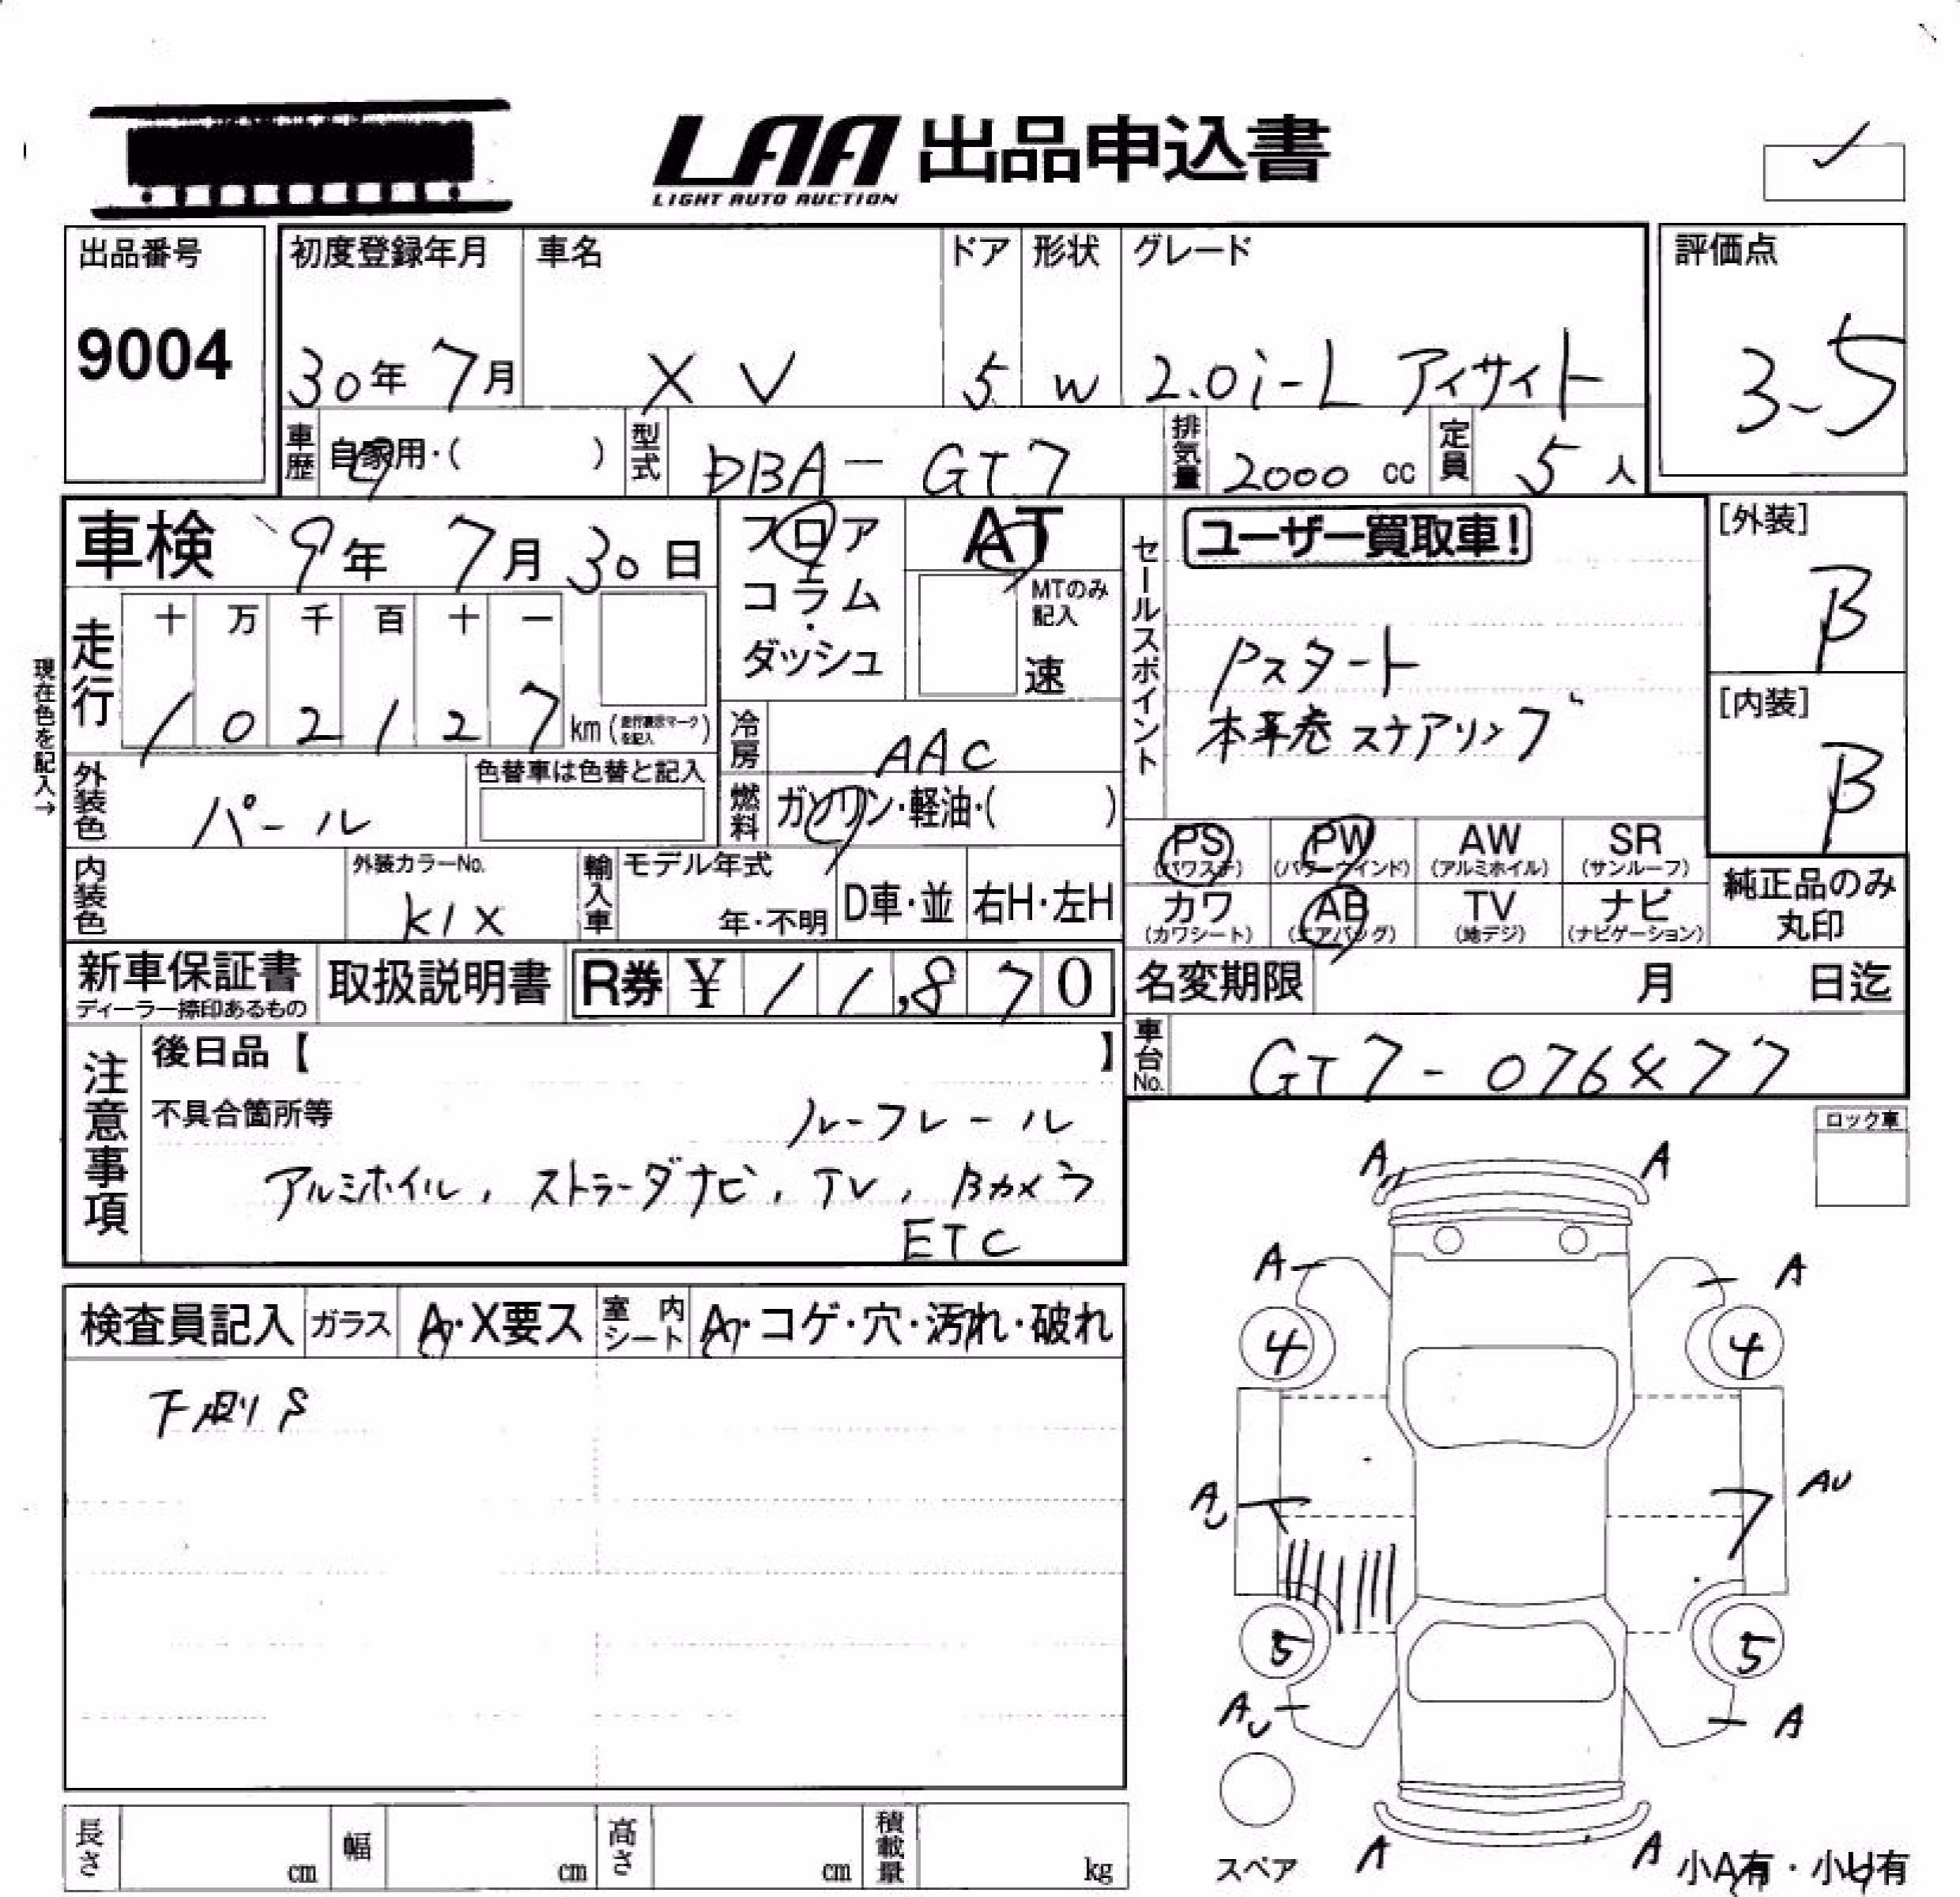 LAA 出品申込書
LIGHT AUTO AUCTION
出品番号
9004
初度登録年月 車名 ドア 形状 グレード
30年 7月 XV 5 W 2.0i-L アイサイト
評価点
3-5
車歴 自家用・( ) 型式 DBA-GT7 排気量 2000 cc 定員 5 人
車検 9年 7月 30日
フロア・コラム・ダッシュ
AT
MTのみ記入
速
セールスポイント
ユーザー買取車!
Pスタート
本革巻ステアリング
[外装]
B
[内装]
B
現在色を記入→
走行 十 万 千 百 十 一
1 0 2 1 2 7 km (走行表示マークを記入)
冷房 AAC
外装色 パール
色替車は色替と記入
燃料 ガソリン・軽油・( )
PS (パワステ) PW (パワーウインド) AW (アルミホイル) SR (サンルーフ)
カワ (カワシート) AB (エアバッグ) TV (地デジ) ナビ (ナビゲーション)
純正品のみ丸印
内装色 外装カラーNo. K1X
輸入車 モデル年式 年・不明 D車・並 右H・左H
新車保証書 ディーラー捺印あるもの
取扱説明書
R券 ¥ 11,870
名変期限 月 日迄
車台No. GT7-076477
注意事項
後日品【 】
不具合箇所等
ルーフレール
アルミホイル, ストラーダナビ, TV, Bカメラ
ETC
ロック車
検査員記入 ガラス A・X要ス 室内シート A・コゲ・穴・汚れ・破れ
下廻りS
A A
A A
4 4
AU AU
5 5
AU A
A A
スペア
小A有・小U有
長さ cm 幅 cm 高さ cm 積載量 kg